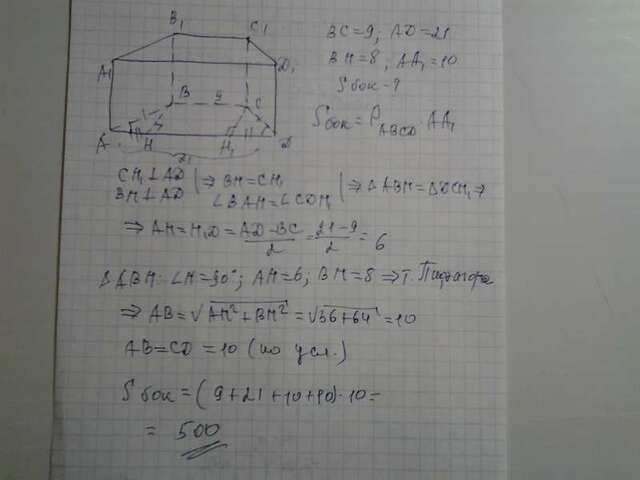 B₁ C₁
A₁ D₁
B 9 C
A H H₁ D
21
BC=9; AD=21
BH=8; AA₁=10
Sбок-?
Sбок=P_ABCD·AA₁
CH₁⊥AD
BH⊥AD |⇒ BH=CH₁
∠BAH=∠CDH₁ |⇒ ΔABH=ΔDCH₁ ⇒
⇒ AH=H₁D= (AD-BC)/2 = (21-9)/2 = 6
ΔABH: ∠H=90°; AH=6; BH=8 ⇒ т. Пифагора
⇒ AB=√(AH²+BH²)=√(36+64)=10
AB=CD=10 (по усл.)
Sбок=(9+21+10+10)·10=
= 500